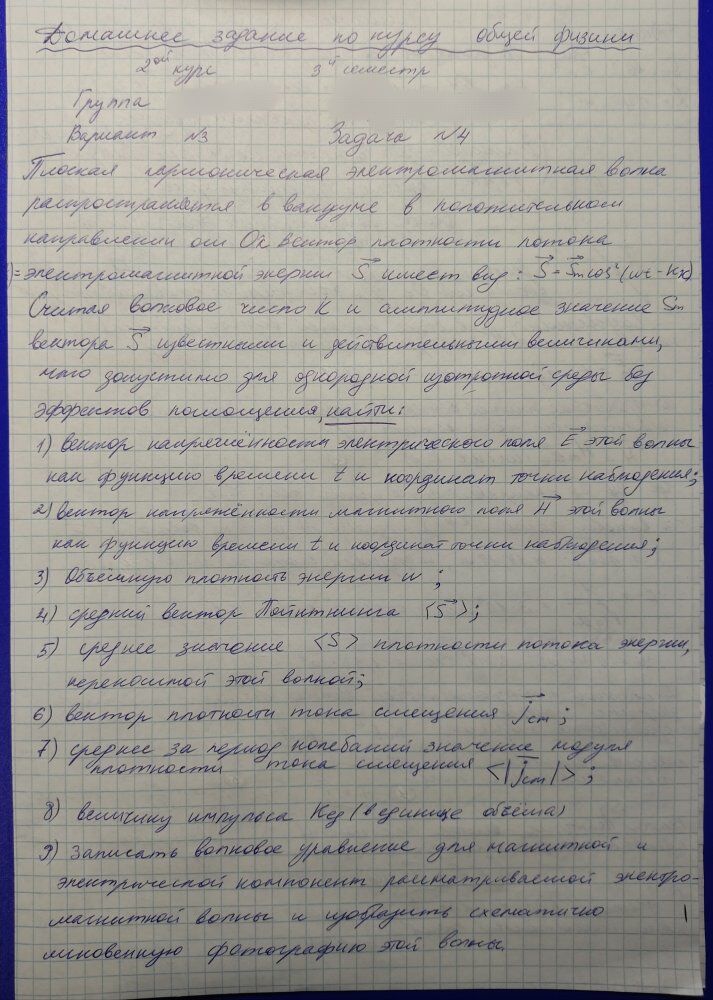 Домашнее задание по курсу общей физики
2ой курс 3й семестр
Группа
Вариант №3 Задача №4
Плоская гармоническая электромагнитная волна
распространяется в вакууме в положительном
направлении оси Ox вектор плотности потока
электромагнитной энергии S⃗ имеет вид: S⃗ = S⃗m cos²(wt - Kx)
Считая волновое число K и амплитудное значение Sm
вектора S⃗ известными и действительными величинами,
что допустимо для однородной изотропной среды без
эффектов поглощения, найти:
1) вектор напряжённости электрического поля E⃗ этой волны
как функцию времени t и координат точки наблюдения;
2) вектор напряжённости магнитного поля H⃗ этой волны
как функцию времени t и координат точки наблюдения;
3) Объёмную плотность энергии w ;
4) средний вектор Пойнтинга <S⃗>;
5) среднее значение <S> плотности потока энергии,
переносимой этой волной;
6) вектор плотности тока смещения j⃗см ;
7) среднее за период колебаний значение модуля
плотности тока смещения <|j⃗см|> ;
8) величину импульса Kед (в единице объёма)
9) Записать волновое уравнение для магнитной и
электрической компонент рассматриваемой электро-
магнитной волны и изобразить схематично
мгновенную фотографию этой волны.
1